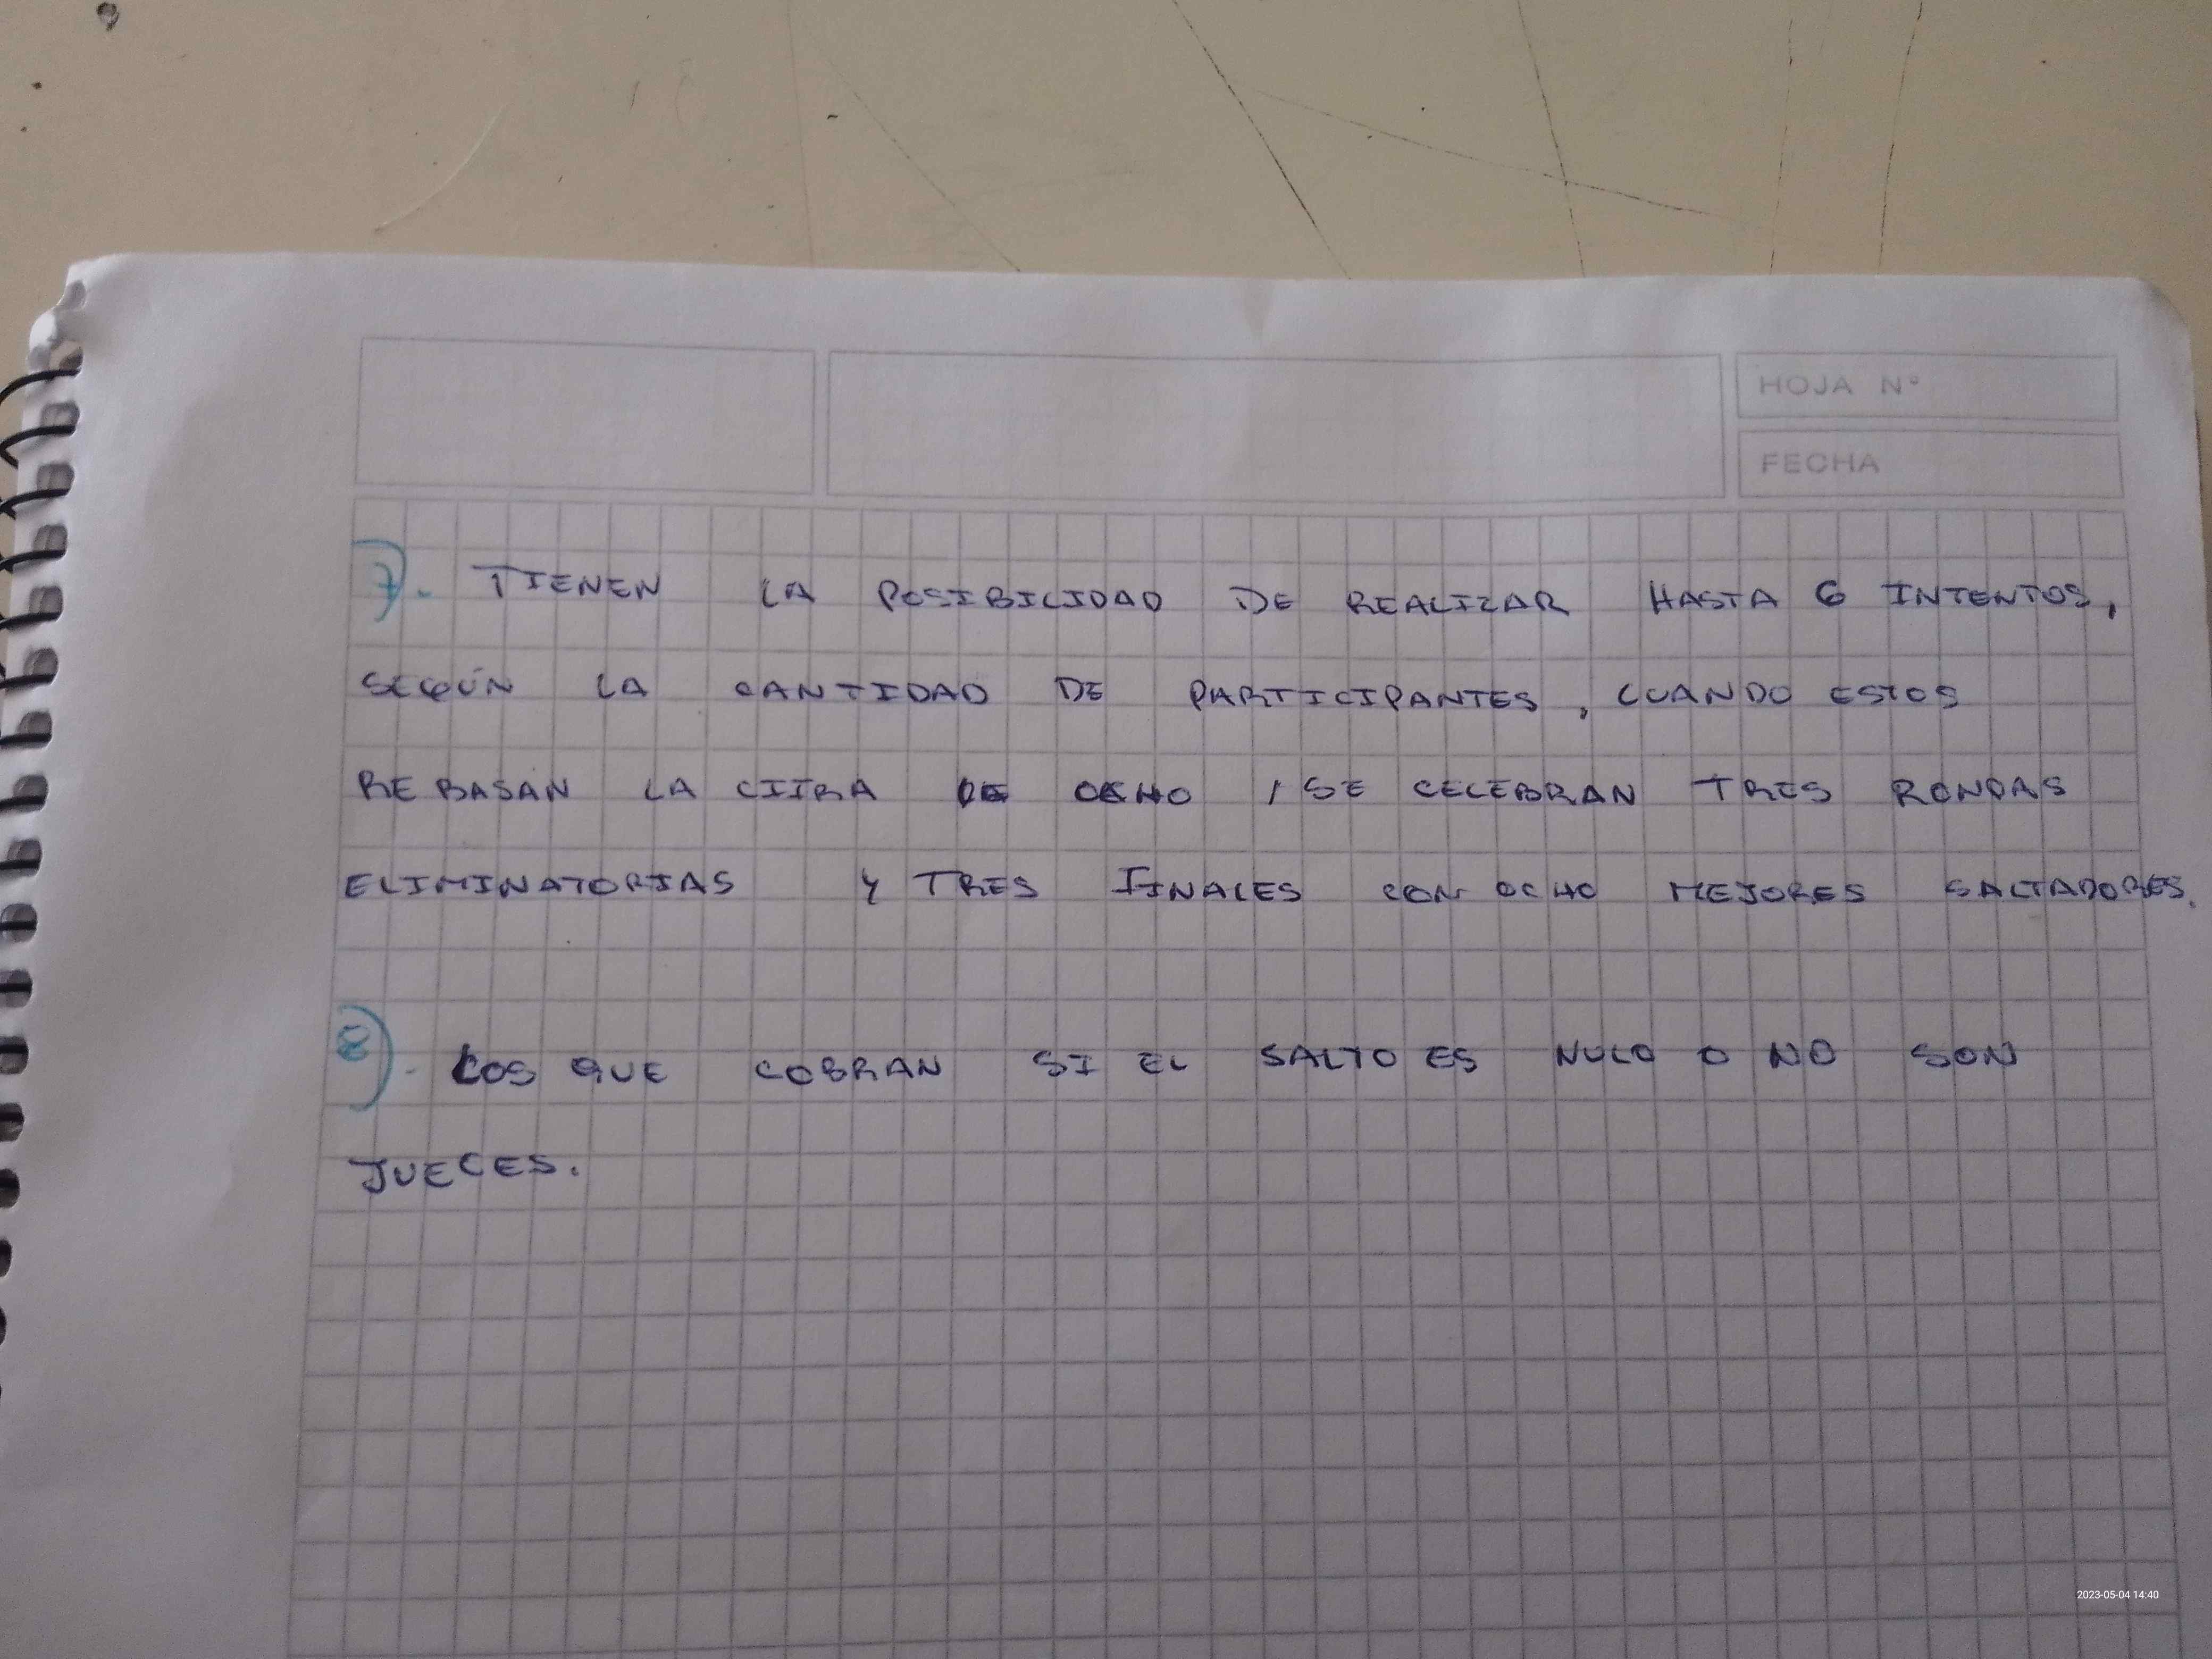 HOJA Nº
FECHA
7). TIENEN LA POSIBILIDAD DE REALIZAR HASTA 6 INTENTOS,
SEGÚN LA CANTIDAD DE PARTICIPANTES, CUANDO ESTOS
REBASAN LA CIFRA DE OCHO, SE CELEBRAN TRES RONDAS
ELIMINATORIAS Y TRES FINALES CON OCHO MEJORES SALTADORES.
8). LOS QUE COBRAN SI EL SALTO ES NULO O NO SON
JUECES.
2023-05-04 14:40